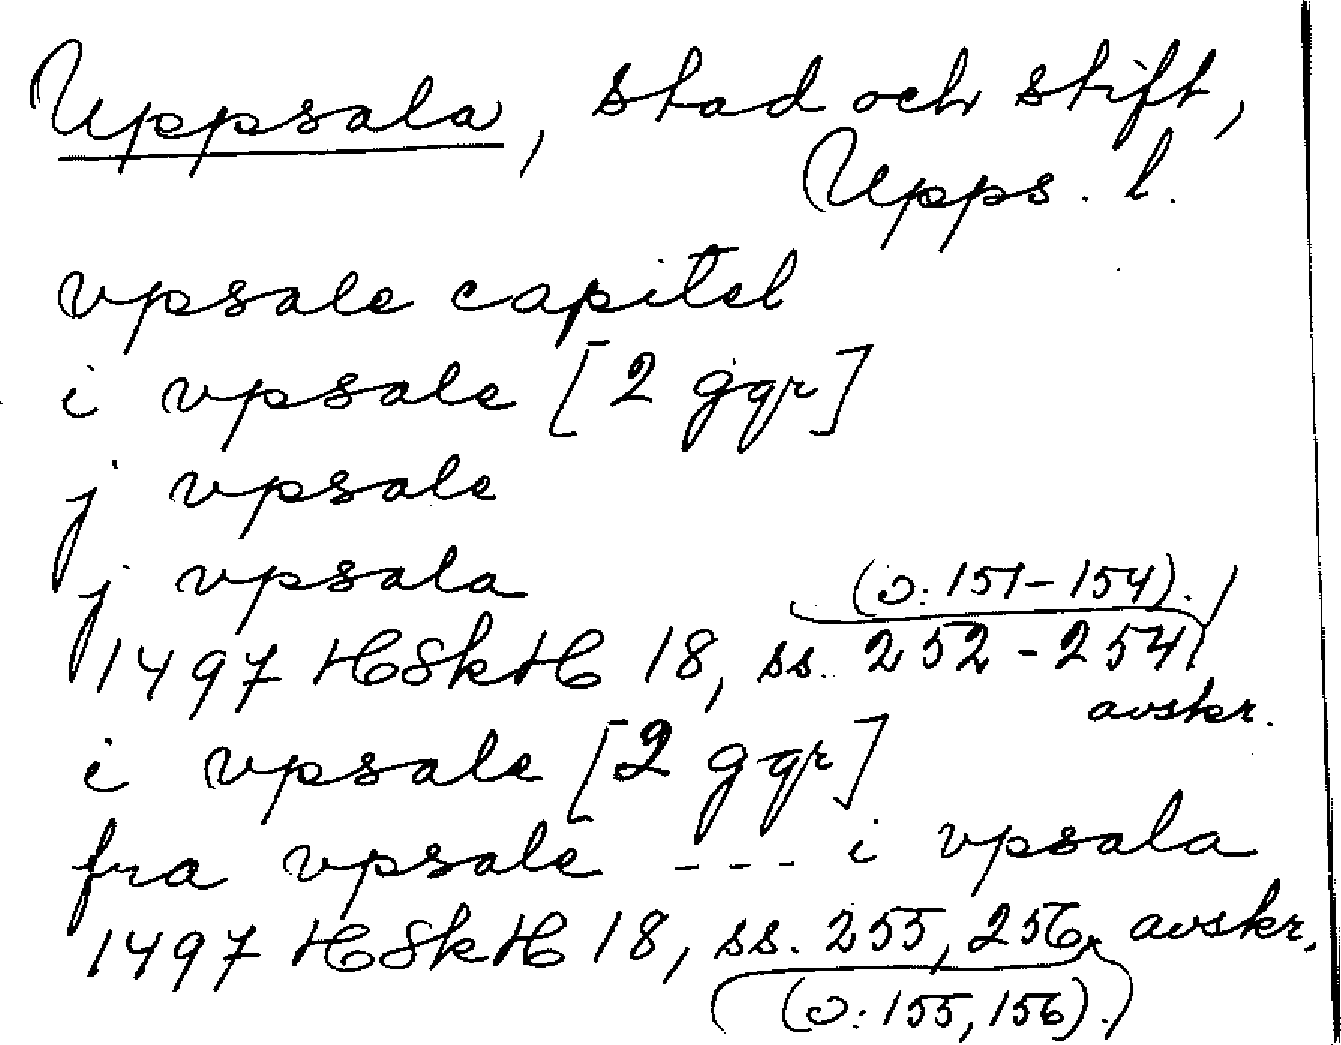 Uppsala, stad och stift,
Upps. l.
vpsale capitel
i vpsale [2 ggr]
j vpsale
j vpsala
(ɔ: 151-154).
1497 HSkH 18, ss. 252-254
avskr.
i vpsale [2 ggr]
fra vpsale --- i vpsala
1497 HSkH 18, ss. 255, 256, avskr.
(ɔ: 155, 156).